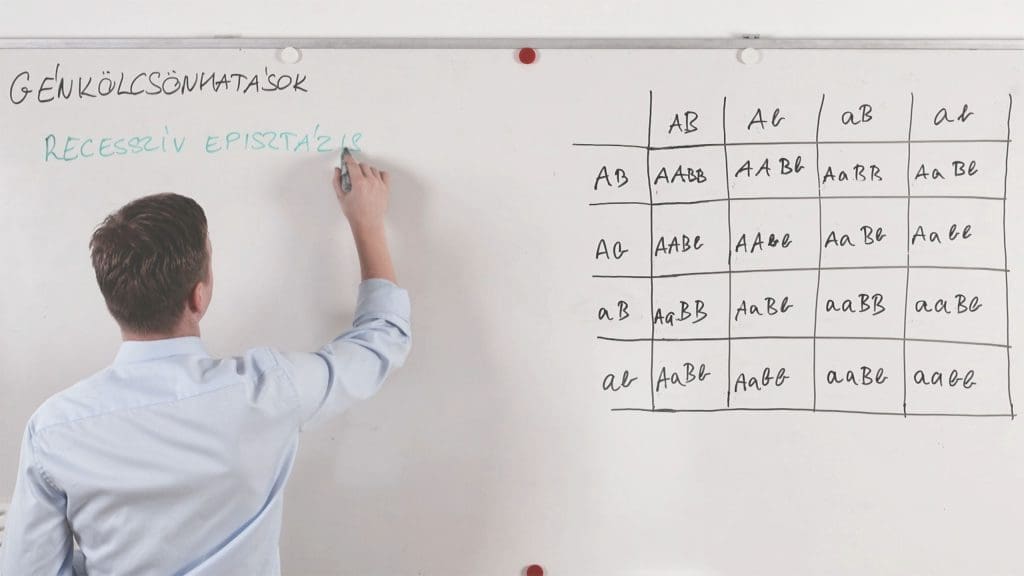 GÉNKÖLCSÖNHATÁSOK
RECESSZÍV EPISZTÁZIS
AB Ab aB ab
AB AABB AABb AaBB AaBb
Ab AABb AAbb AaBb Aabb
aB AaBB AaBb aaBB aaBb
ab AaBb Aabb aaBb aabb